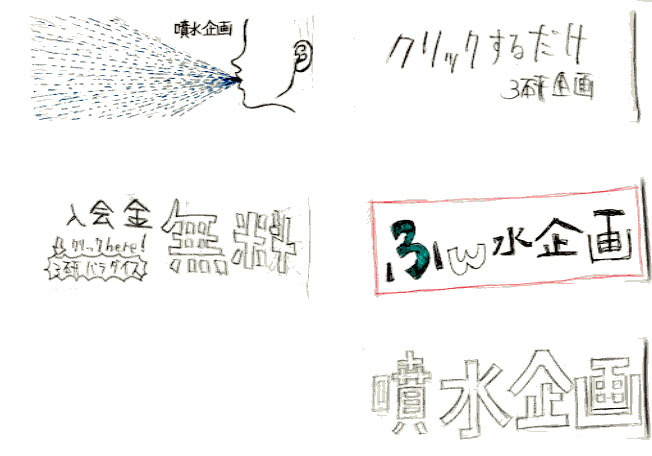 噴水企画
クリックするだけ
企画
入会金
無料
クリックhere!
パラダイス
ふw水企画
噴水企画